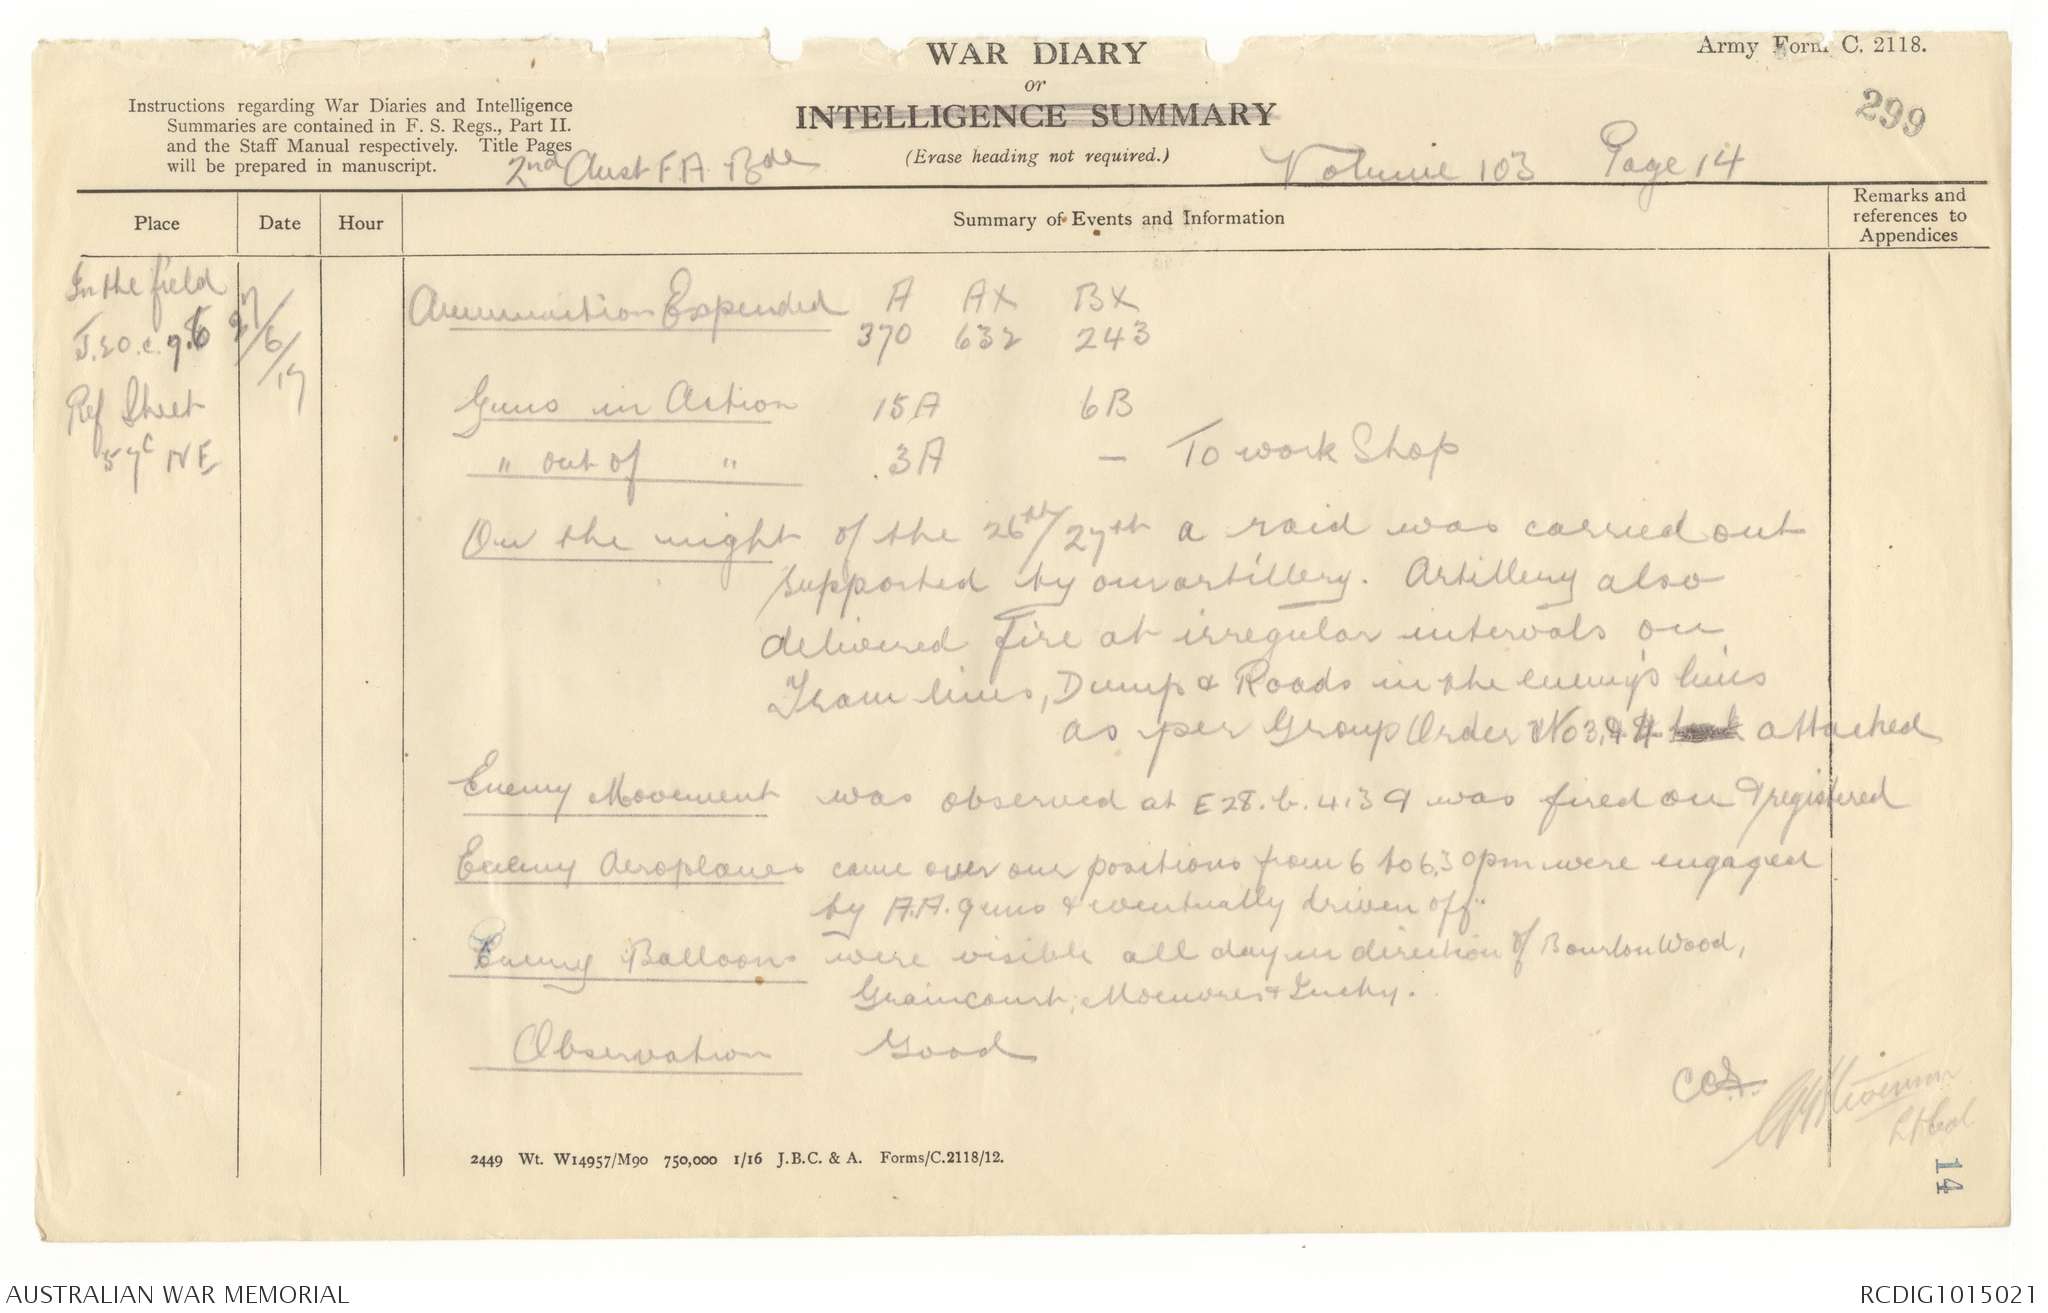 WAR DIARY
or
INTELLIGENCE SUMMARY
(Erase heading not required.)
Army Form C. 2118.
299
Instructions regarding War Diaries and Intelligence
Summaries are contained in F. S. Regs., Part II.
and the Staff Manual respectively. Title Pages
will be prepared in manuscript.
2nd Aust F A Bde
Volume 103 Page 14
Place
Date
Hour
Summary of Events and Information
Remarks and
references to
Appendices
In the field
J.20.c.9.6
Ref Sheet
57c NE
27/6/17
Ammunition Expended A AX BX
370 632 243
Guns in Action 15A 6B
" out of " 3A - To work Shop
On the night of the 26th/27th a raid was carried out
supported by our artillery. Artillery also
delivered Fire at irregular intervals on
Tram lines, Dumps & Roads in the enemy's lines
as per Group Order No 3, 44 attached
Enemy Movement was observed at E28.b.4.3 & was fired on & registered
Enemy Aeroplanes came over our positions from 6 to 6.30pm were engaged
by A.A. guns & eventually driven off.
Enemy Balloons were visible all day in direction of Bourlon Wood,
Graincourt, Moeuvres & Inchy.
Observation Good
Stevenson
Lt Col
2449 Wt. W14957/M90 750,000 1/16 J.B.C. & A. Forms/C.2118/12.
14
AUSTRALIAN WAR MEMORIAL
RCDIG1015021